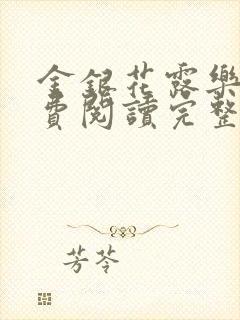 金銀花露樂
費閱讀完整
芳苓